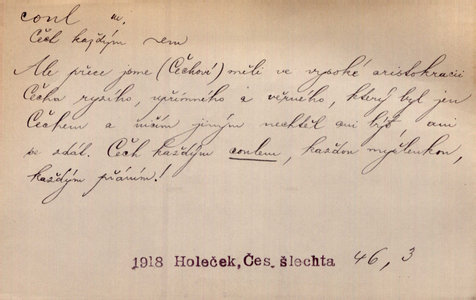 coul m.
Čech každým -em
Ale přece jsme (Čechové) měli ve vysoké aristokracii
Čecha ryzího, upřímného a věrného, který byl jen
Čechem a ničím jiným nechtěl ani být, ani
se zdát. Čech každým coulem, každou myšlenkou,
každým přáním!
1918 Holeček, Čes. šlechta 46, 3